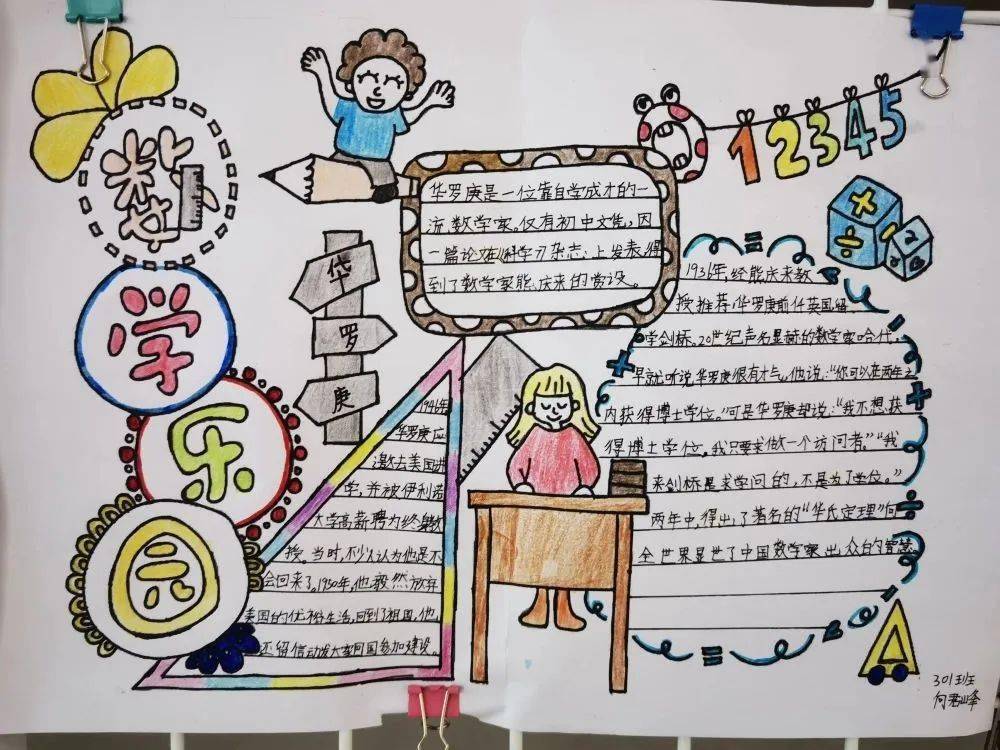 数
学
乐
园
华
罗
庚
华罗庚是一位靠自学成才的一
流数学家。仅有初中文凭，因
一篇论文在《科学》杂志上发表，得
到了数学家熊庆来的赏设。
12345
1936年，经熊庆来教
授推荐，华罗庚前往英国留
学剑桥。20世纪声名显赫的数学家哈代，
早就听说华罗庚很有才气，他说：“你可以在两年之
内获得博士学位。”可是华罗庚却说：“我不想获
得博士学位，我只要求做一个访问者。”“我
来剑桥是求学问的，不是为了学位。”
两年中，得出了著名的“华氏定理”向
全世界显世了中国数学家出众的智慧
1946年
华罗庚应
邀去美国讲
学，并被伊利诺
大学高薪聘为终身教
授。当时，不少人认为他是不
会回来了。1950年，他毅然放弃
美国的优裕生活，回到了祖国，他
还留信动大家回国参加建设。
301班